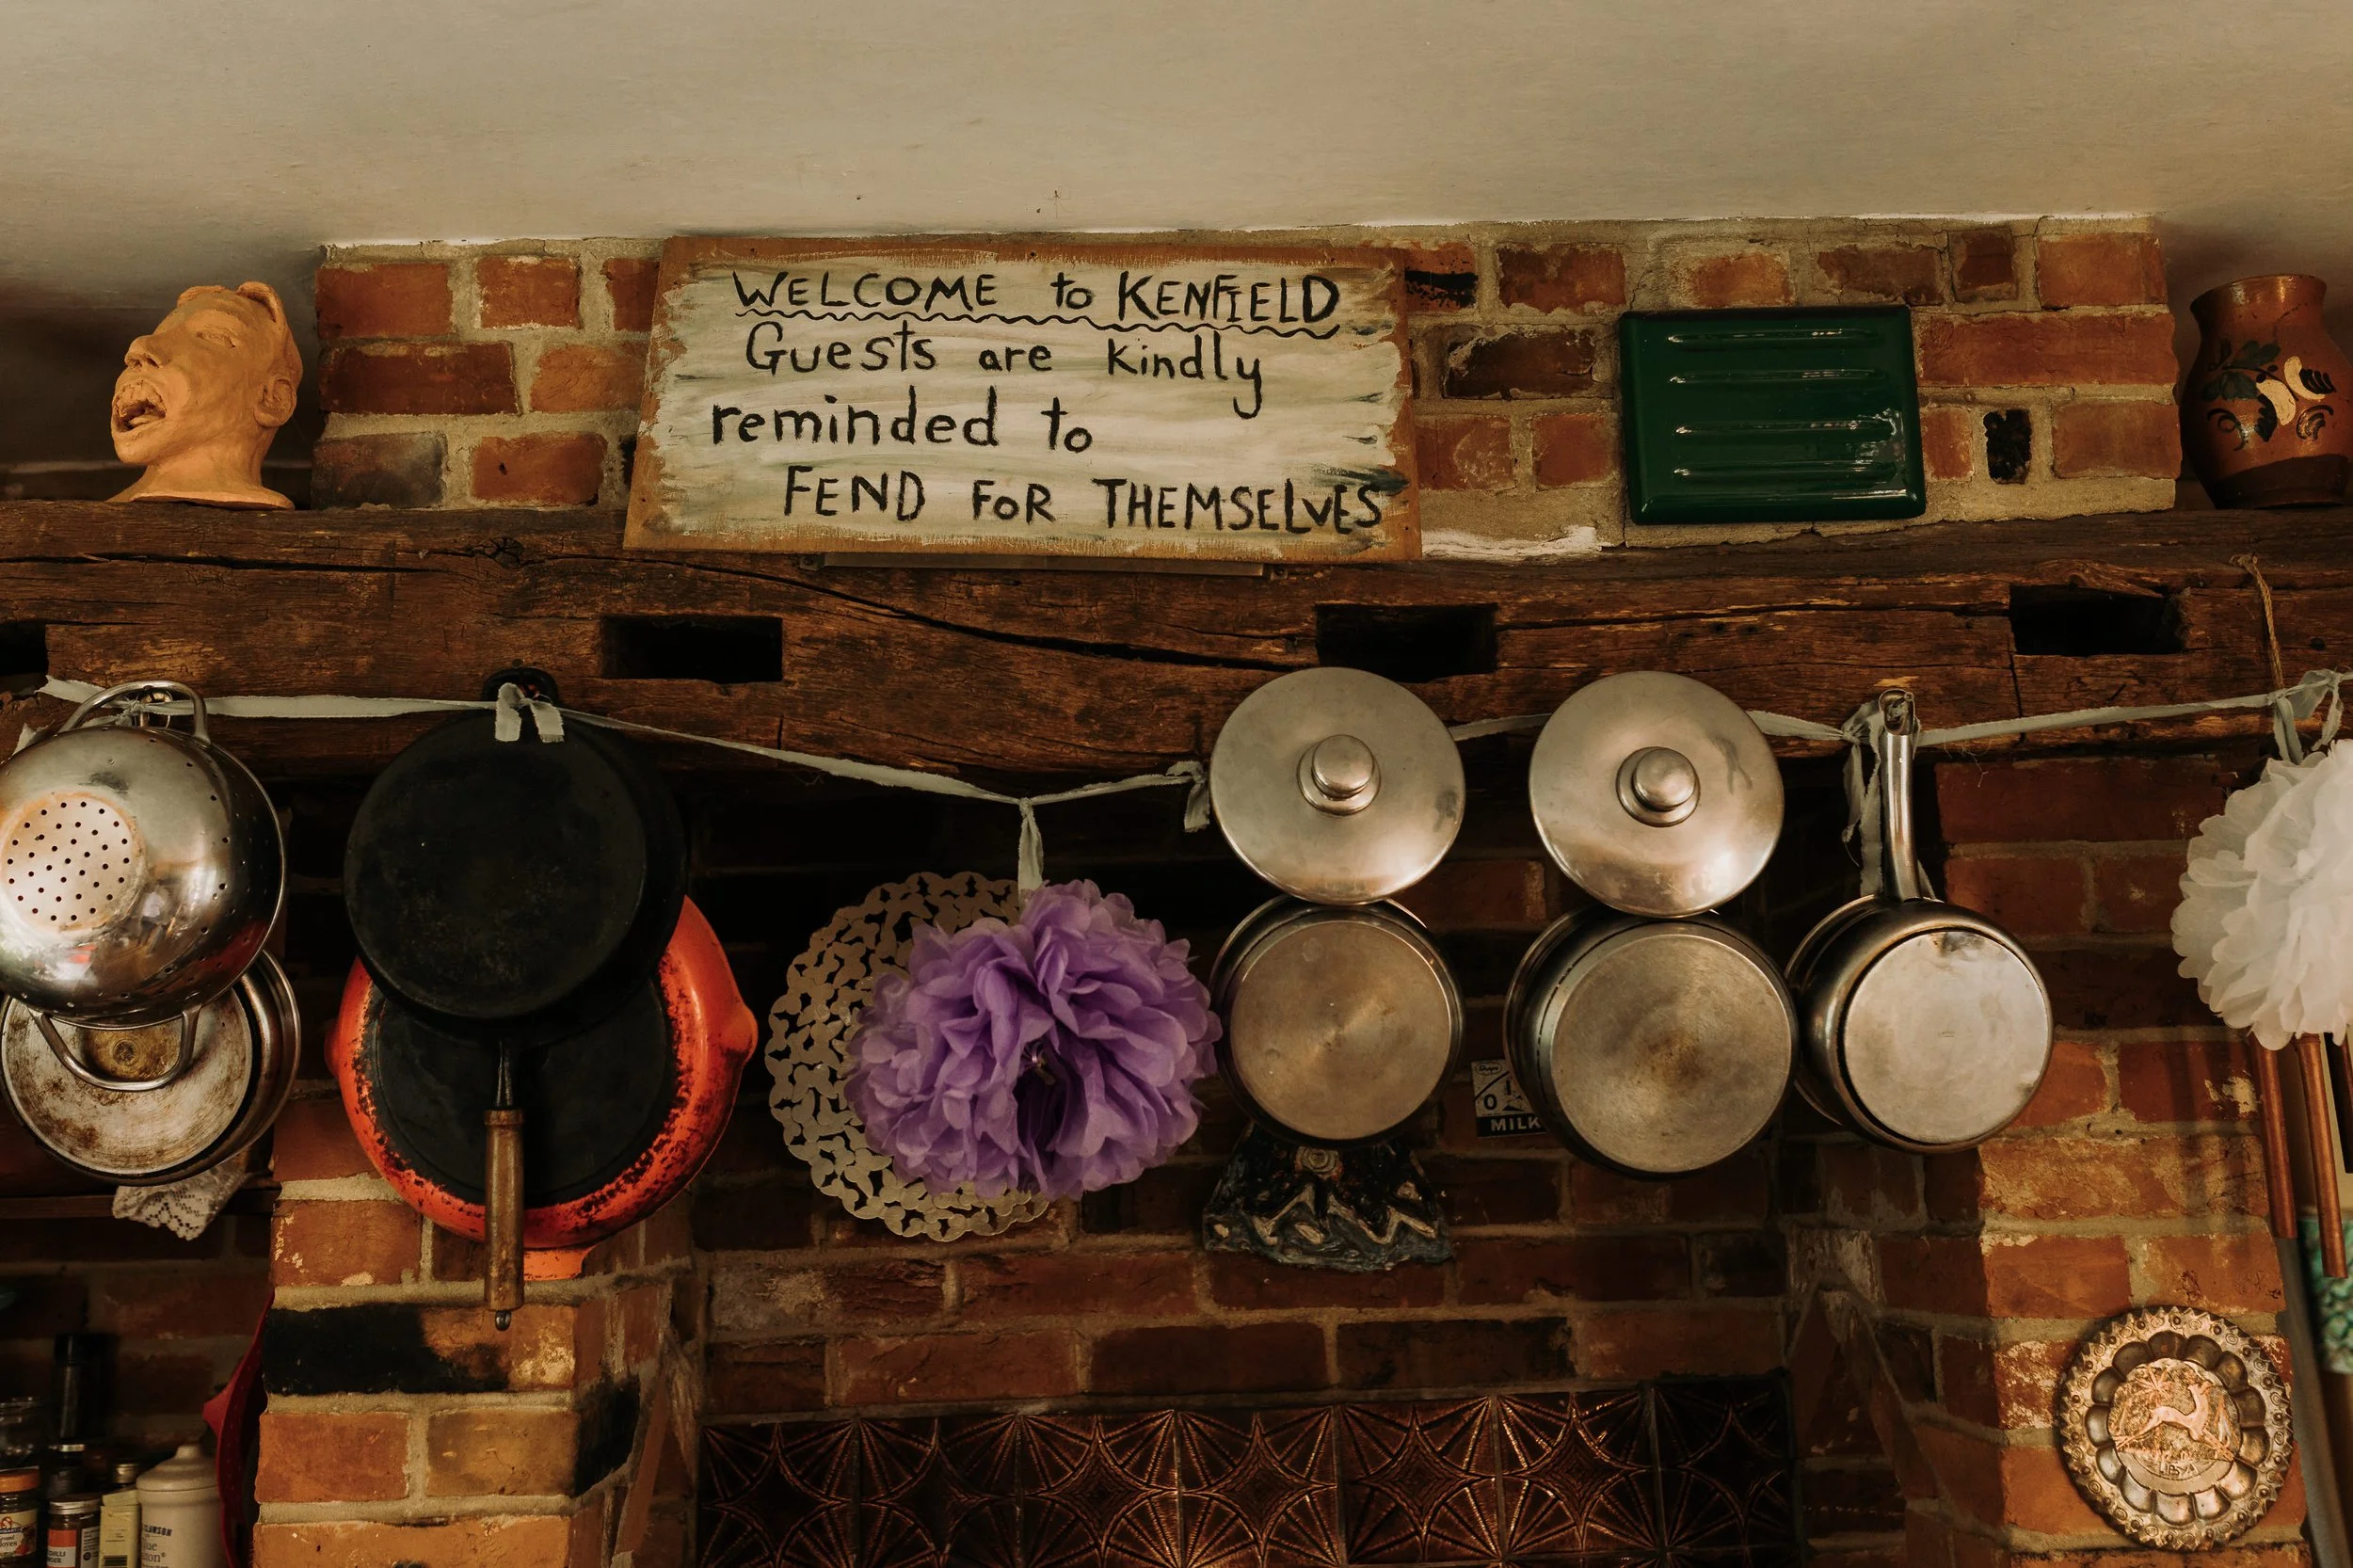 WELCOME to KENFIELD
Guests are kindly
reminded to
FEND FOR THEMSELVES
MILK